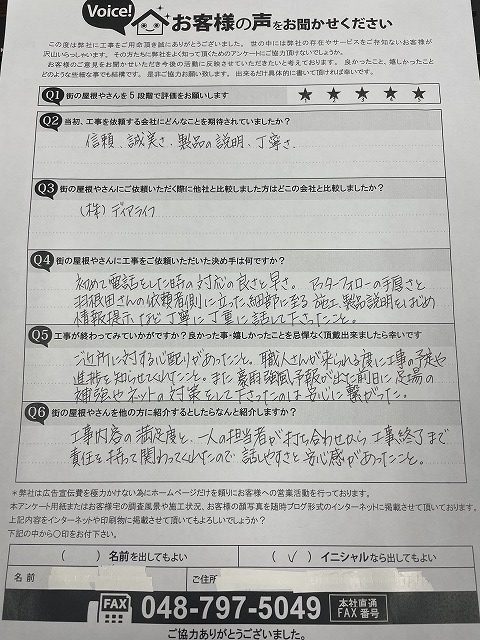 Voice!
お客様の声をお聞かせください
この度は弊社に工事をご用命頂き誠にありがとうございました。世の中には弊社の存在やサービスをご存知ないお客様が
沢山いらっしゃいます。その方たちに弊社をよく知って頂くためのアンケートにご協力頂けないでしょうか?
お客様のご意見をお聞かせいただき今後の活動に反映させていただきたいと考えております。良かったこと、嬉しかったこと
どのような些細な事でも結構です。是非ご協力お願い致します。出来るだけ具体的に書いて頂ければ幸いです。
Q1 街の屋根やさんを5段階で評価をお願いします ★ ★ ★ ★ ★
Q2 当初、工事を依頼する会社にどんなことを期待されていましたか?
信頼、誠実さ、製品の説明、丁寧さ
Q3 街の屋根やさんにご依頼いただく際に他社と比較しました方はどこの会社と比較しましたか?
(株)ディアライフ
Q4 街の屋根やさんに工事をご依頼いただいた決め手は何ですか?
初めて電話をした時の対応の良さと早さ。アフターフォローの手厚さと
羽根田さんの依頼者側に立った細部に至る施工、製品説明をはじめ
情報提示など丁寧に丁寧に話して下さったこと。
Q5 工事が終わってみていかがですか?良かった事・嬉しかったことを忌憚なく頂戴出来ましたら幸いです
ご近所に対する心配りがあったこと。職人さんが来られる度に工事の予定や
進捗を知らせてくれたこと。また豪雨強風予報が出た前日に足場の
補強やネットの対策をして下さったのは安心に繋がった。
Q6 街の屋根やさんを他の方に紹介するとしたらなんと紹介しますか?
工事内容の満足度と、一人の担当者が打ち合わせから工事終了まで
責任を持って関わってくれたので話しやすさと安心感があったこと。
＊弊社は広告宣伝費を極力かけない為にホームページだけを頼りにお客様への営業活動を行っております。
本アンケート用紙またはお客様宅の調査風景や施工状況、お客様の顔写真を随時ブログ形式のインターネットに掲載させて頂いております。
上記内容をインターネットや印刷物に掲載させて頂いてもよろしいでしょうか?
下記の中から〇印をお付下さい。
( )名前を出してもよい (✓)イニシャルなら出してもよい
名前 ご住所
FAX 048-797-5049 本社直通 FAX番号
ご協力ありがとうございました。